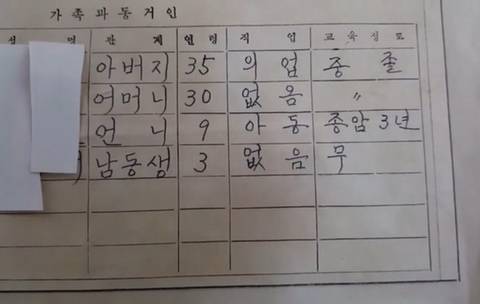 가족과동거인
성 명 관 계 연령 직 업 교육정도
아버지 35 의업 중 졸
어머니 30 없음 〃
언 니 9 아동 종암 3년
남동생 3 없음 무